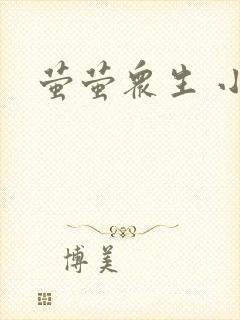 萤萤众生 小
博美